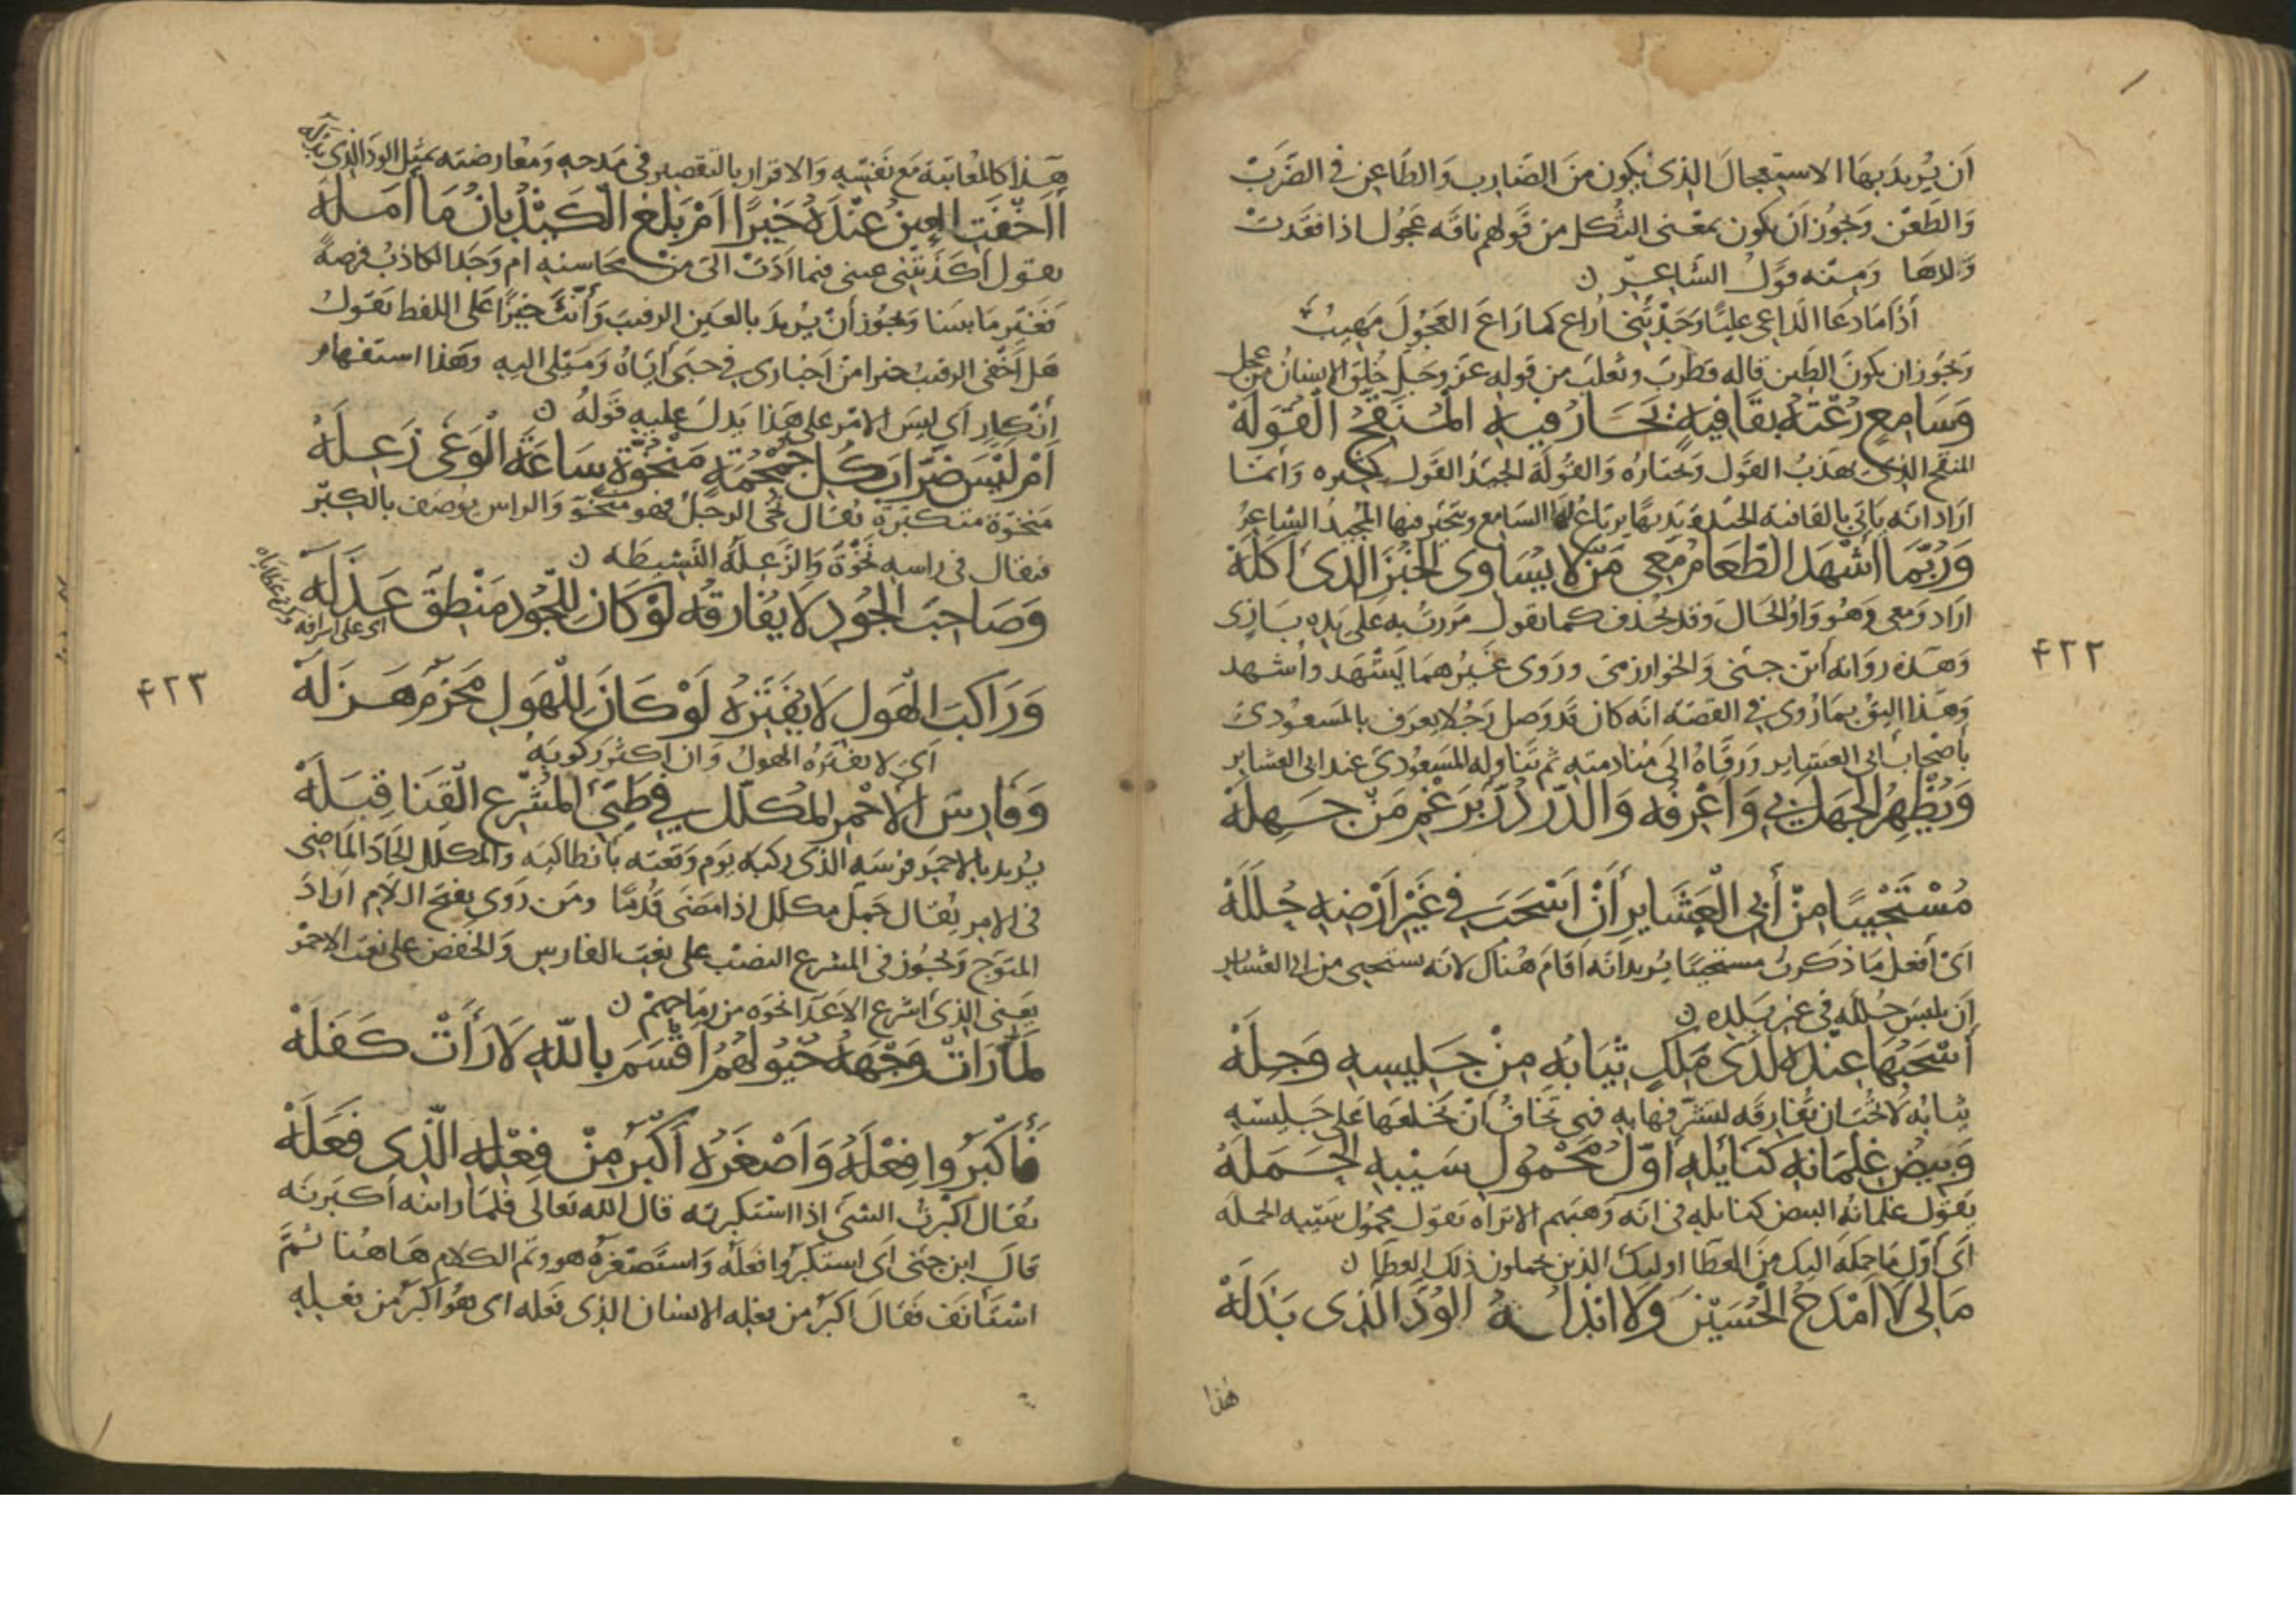 أن يريد بها الاستعجال الذي يكون من الضارب والطاعن في الضرب
والطعن ويجوز أن يكون بمعنى الثكل من قولهم ناقة عجول اذا فقدت
ولدها ومنه قول الشاعر ن
اذا ما دعا الداعي عليًا وجدتني أراع كما راع العجول مهيب
ويجوز ان يكون الطين قاله قطرب وثعلب من قوله عز وجل خلق الانسان من عجل
وَسَامِعٍ رُعْتُهُ بِقَافِيَةٍ يَحَارُ فِيهَا الْمُنَقِّحُ الْقُوَلَهْ
المنقح الذي يهذب القول ويختاره والقولة الجيد القول وانما
اراد انه ياتي بالقافية الجيدة يرتاع لها السامع ويتحير فيها المجيد الشاعر
وَرُبَّمَا اُشْهِدُ الطَّعَامَ مَعِي مَنْ لَا يُسَاوِي الْخُبْزَ الَّذِي أَكَلَهْ
اراد ومعي وهو واو الحال وقد يحذف كما تقول مررت به على يده بازي
وهذه رواية ابن جني والخوارزمي وروى غيرهما يشهد وأشهد
وهذا اليق بما روي في القصة انه كان قد وصل رجلا يعرف بالمسعودي
باصحاب ابي العشاير ورقاه الى منادمته ثم تناوله المسعودي عند ابي العشاير
وَيُظْهِرُ الْجَهْلَ بِي وَأَعْرِفُهُ وَالدُّرُّ دُرٌّ بِرَغْمِ مَنْ جَهِلَهْ
مُسْتَحْيِيًا مِنْ أَبِي الْعَشَايِرِ أَنْ اَسْحَبَ فِي غَيْرِ اَرْضِهِ حُلَلَهْ
اي أفعل ما ذكرت مستحييًا يريد انه اقام هناك لانه يستحيي من ابي العشاير
أن يلبس حلله في غير بلده ن
أَسْحَبُهَا عِنْدَهُ لَدَى مَلِكٍ ثِيَابُهُ مِنْ جَلِيسِهِ وَجِلَهْ
ثيابه لا تحب ان تفارقه لتشرفها به فهي تخاف أن يخلعها على جليسه
وَبِيضُ غِلْمَانِهِ كَنَايِلِهِ أَوَّلُ مَحْمُولِ سَيْبِهِ الْحَمَلَهْ
يقول غلمانه البيض كنايله في انه وهبهم الا تراه يقول محمول سيبه الحملة
اي أول ما حمله اليك من العطا اوليك الذين يحملون ذلك العطا ن
مَا لِي لَا اَمْدَحُ الْحُسَيْنَ وَلَا ابْذُلُ الْوُدَّ الَّذِي بَذَلَهْ
هذا
٤٢٢
هذا كالمعاتبة مع نفسه والاقرار بالتقصير في مدحه ومعارضته بمثل الود الذي بذله
أَأَخْفَتِ الْعَيْنُ عِنْدَهُ خَبَرًا اَمْ بَلَغَ الْكَيْذُبَانُ مَا اَمَلَهْ
يقول أكذبتني عيني فيما ادت الي من محاسنه ام وجد الكاذب فرصة
فغير ما بيننا ويجوز أن يريد بالعين الرقيب وأنث خبرًا على اللفظ يقول
هل أخفى الرقيب خبرا من أخباري في حبي اياه وميلي اليه وهذا استفهام
انكار اي ليس الامر على هذا يدل عليه قوله ن
اَمْ لَيْسَ ضَرَّابَ كُلِّ جُمْجُمَةٍ مَنْخُوَّةٍ سَاعَةَ الْوَغَى زَعِلَهْ
منخوة متكبرة يقال نخي الرجل فهو منخو والراس يوصف بالكبر
فيقال في راسه نخوة والزعلة النشيطه ن
وَصَاحِبَ الْجُودِ لَا يُفَارِقُهُ لَوْ كَانَ لِلْجُودِ مَنْطِقٌ عَذَلَهْ
اي على اسرافه
وَرَاكِبَ الْهَوْلِ لَا يُفَتِّرُهُ لَوْ كَانَ لِلْهَوْلِ مَحْزِمٌ هَزَلَهْ
اي لا يفتره الهول وان اكثر ركوبه
وَفَارِسَ الْأَحْمَرِ الْمُكَلِّلِ فِي طَيِّئٍ الْمُشْرَعِ الْقَنَا قِبَلَهْ
يريد بالاحمر فرسه الذي ركبه يوم وقعته بانطاكيه والمكلل الجاد الماضي
في الامر يقال حمل مكلل اذا مضى قدمًا ومن روى بفتح اللام اراد
المتوج ويجوز في المشرع النصب على نعت الفارس والخفض على نعت الاحمر
يعني الذي اشرع الاعدا نحوه من رماحهم ن
لَمَّا رَأَتْ وَجْهَهُ خُيُولُهُمُ اَقْسَمَ بِاللهِ لَا رَأَتْ كَفَلَهْ
فَأَكْبَرُوا فِعْلَهُ وَاَصْغَرَهُ أَكْبَرُ مِنْ فِعْلِهِ الَّذِي فَعَلَهْ
يقال اكبرت الشيء إذا استكبرته قال الله تعالى فلما راينه أكبرنه
قال ابن جني أي استكبروا فعله واستصغره هو وتم الكلام هاهنا ثم
استأنف فقال اكبر من فعله الانسان الذي فعله اي هو اكبر من فعله
٤٢٣